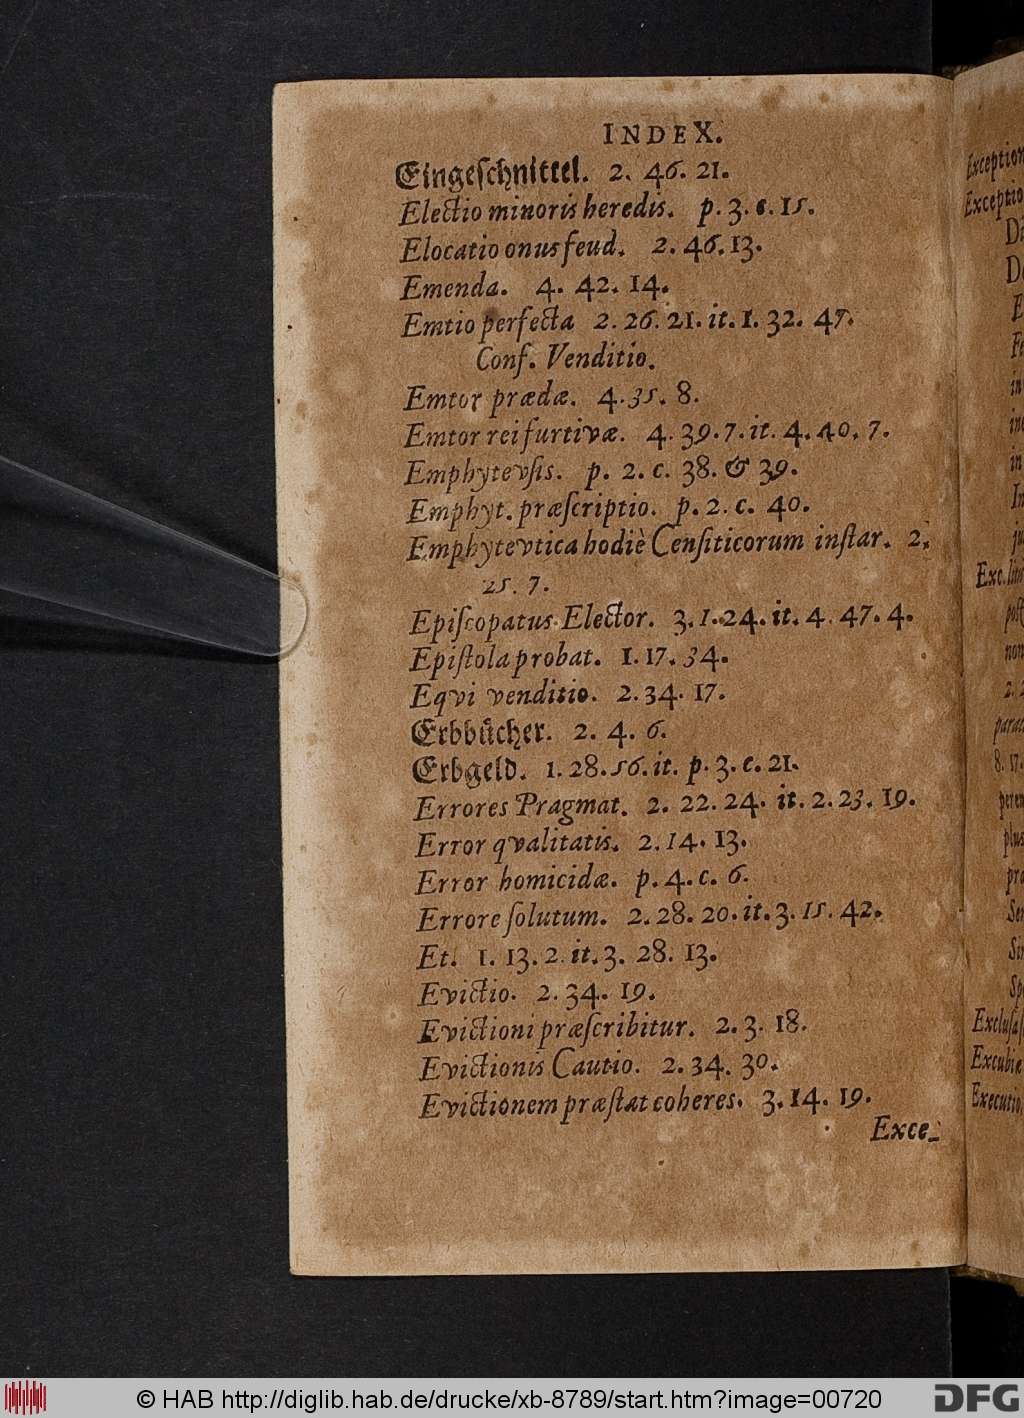 INDEX.
Eingeſchnittel. 2. 46. 21.
Electio minoris heredis. p. 3. c. 15.
Elocatio onus feud. 2. 46. 13.
Emenda. 4. 42. 14.
Emtio perfecta 2. 26. 21. it. 1. 32. 47.
Conf. Venditio.
Emtor prædæ. 4. 35. 8.
Emtor rei furtivæ. 4. 39. 7. it. 4. 40. 7.
Emphytevſis. p. 2. c. 38. & 39.
Emphyt. præſcriptio. p. 2. c. 40.
Emphytevtica hodiè Cenſiticorum inſtar. 2.
25. 7.
Epiſcopatus Elector. 3. 1. 24. it. 4. 47. 4.
Epiſtola probat. 1. 17. 34.
Eqvi venditio. 2. 34. 17.
Erbbücher. 2. 4. 6.
Erbgeld. 1. 28. 56. it. p. 3. c. 21.
Errores Pragmat. 2. 22. 24. it. 2. 23. 19.
Error qvalitatis. 2. 14. 13.
Error homicidæ. p. 4. c. 6.
Errore ſolutum. 2. 28. 20. it. 3. 15. 42.
Et. 1. 13. 2. it. 3. 28. 13.
Evictio. 2. 34. 19.
Evictioni præſcribitur. 2. 3. 18.
Evictionis Cautio. 2. 34. 30.
Evictionem præſtat coheres. 3. 14. 19.
Exce-
Exception
Exceptio
Exc.
Excubiæ
Executio
© HAB http://diglib.hab.de/drucke/xb-8789/start.htm?image=00720
DFG